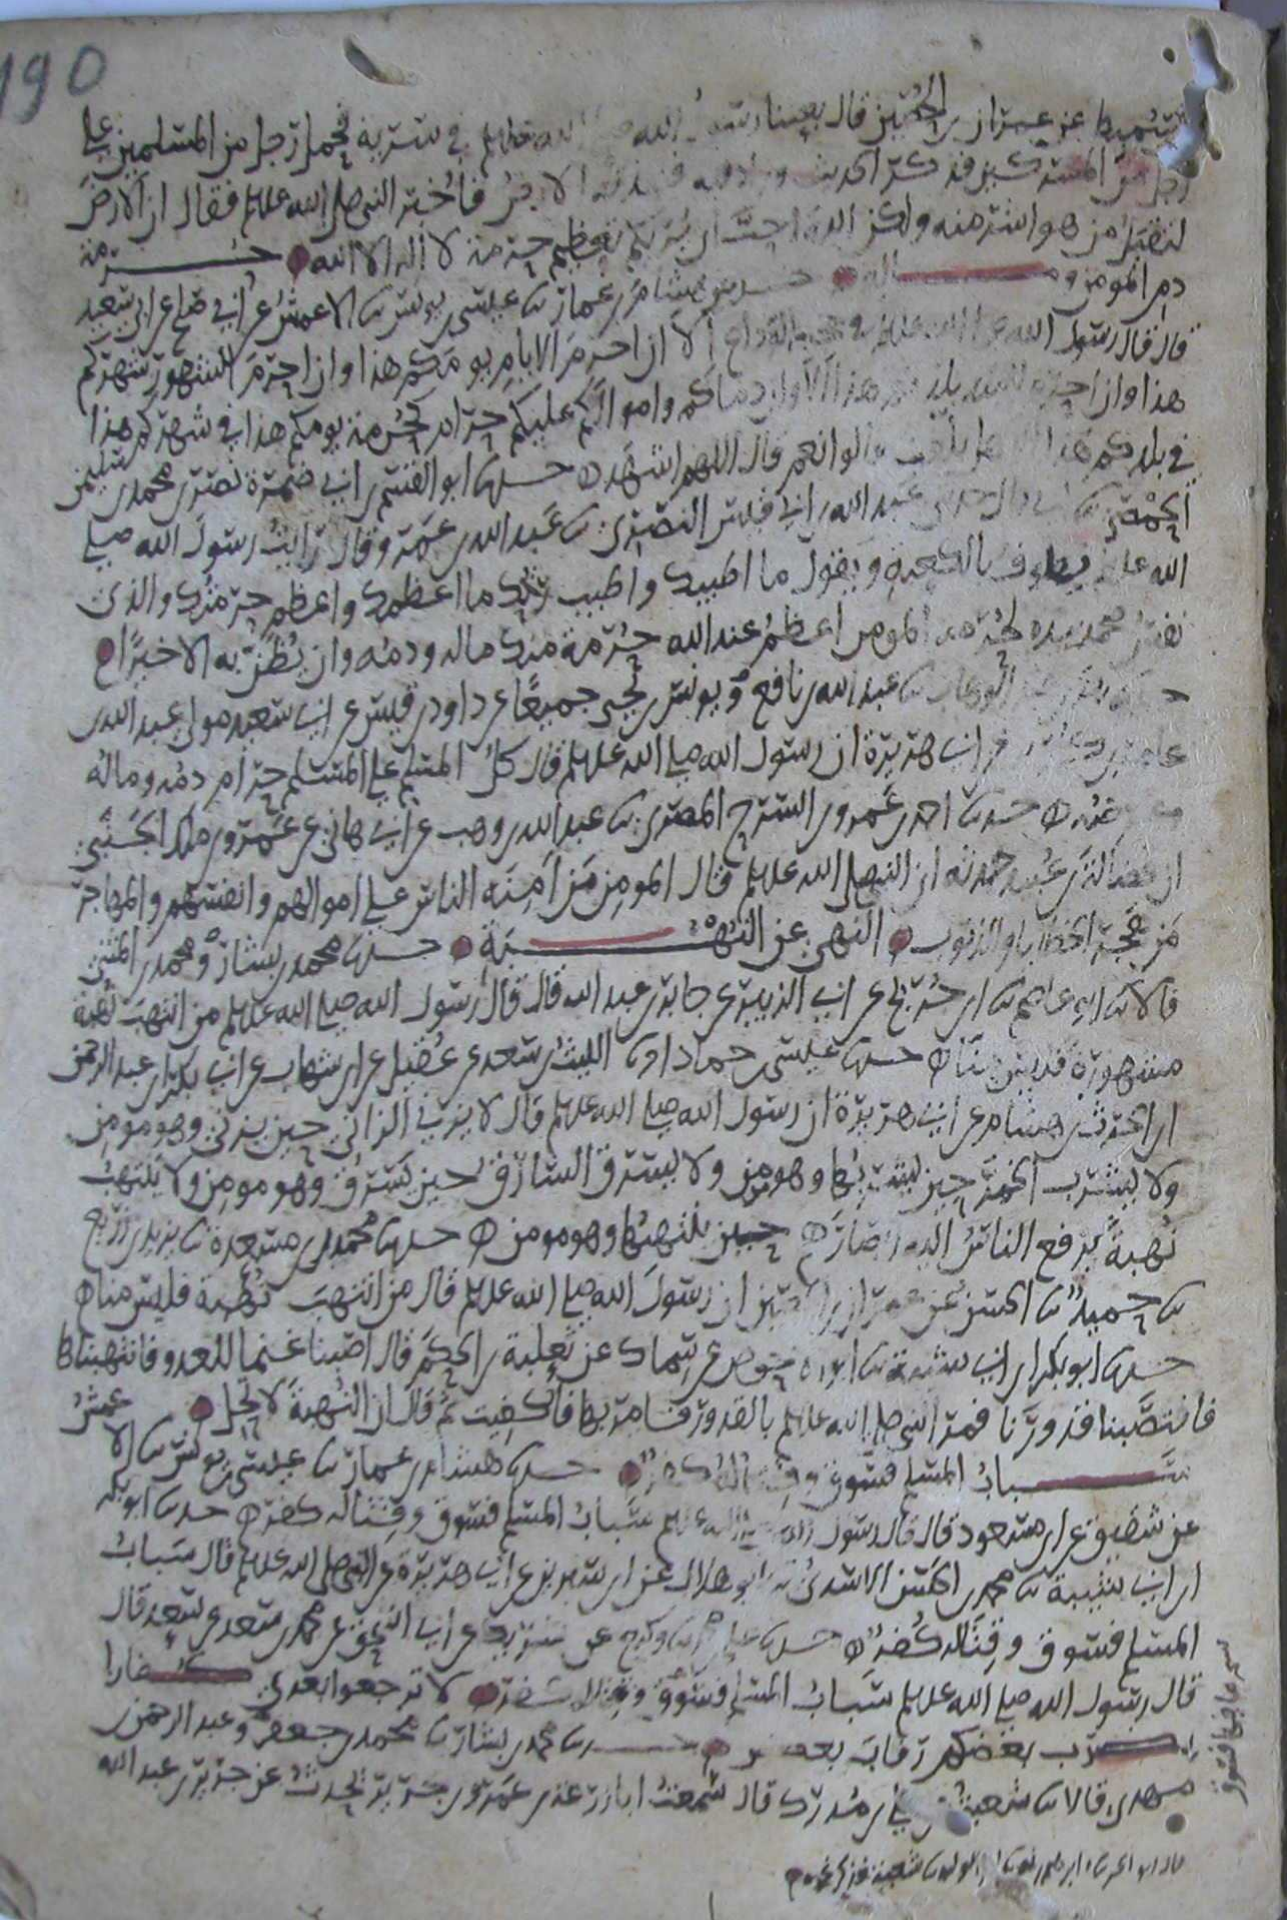 190
السميط عن عمران بن الحصين قال بعثنا رسول الله صلى الله عليه وسلم في سرية فحمل رجل من المسلمين على
رجل من المشركين فذكر الحديث وزاد فيه فنبذته الارض فاخبر النبي صلى الله عليه وسلم فقال ان الارض
لتقبل من هو اشر منه ولكن الله احب ان يريكم تعظيم حرمة لا اله الا الله حرمة
دم المومن وماله حدثنا هشام بن عمار نا عيسى بن يونس نا الاعمش عن ابي صالح عن ابي سعيد
قال قال رسول الله صلى الله عليه وسلم في حجة الوداع الا ان احرم الايام يومكم هذا وان احرم الشهور شهركم
هذا وان احرم البلد بلدكم هذا الا وان دماكم واموالكم عليكم حرام كحرمة يومكم هذا في شهركم هذا
في بلدكم هذا الا هل بلغت قالوا نعم قال اللهم اشهد حدثنا ابو القسم بن ابي ضمرة نصر بن محمد بن سليمن
الحمصي نا ابي نا عبد الله بن ابي قيس النصري نا عبد الله بن عمرو قال رايت رسول الله صلى
الله عليه يطوف بالكعبة ويقول ما اطيبك واطيب ريحك ما اعظمك واعظم حرمتك والذي
نفس محمد بيده لحرمة المومن اعظم عند الله حرمة منك ماله ودمه وان نظن به الا خيرا
حدثنا بكر بن عبد الوهاب نا عبد الله بن نافع ويونس بن يحيى جميعا عن داود بن قيس عن ابي سعيد مولى عبد الله بن
عامر بن كريز عن ابي هريرة ان رسول الله صلى الله عليه وسلم قال كل المسلم على المسلم حرام دمه وماله
وعرضه حدثنا احمد بن عمرو بن السرح المصري نا عبد الله بن وهب عن ابي هاني عن عمرو بن ملك الجنبي
ان فضالة بن عبيد حدثه ان النبي صلى الله عليه وسلم قال المومن من امنه الناس على اموالهم وانفسهم والمهاجر
من هجر الخطايا والذنوب النهي عن النهبة حدثنا محمد بن بشار ومحمد بن المثنى
قالا نا ابو عاصم نا ابن جريج عن ابي الزبير عن جابر بن عبد الله قال قال رسول الله صلى الله عليه وسلم من انتهب نهبة
مشهورة فليس منا حدثنا عيسى بن حماد انا الليث بن سعد عن عقيل عن ابن شهاب عن ابي بكر بن عبد الرحمن
ابن الحرث بن هشام عن ابي هريرة ان رسول الله صلى الله عليه وسلم قال لا يزني الزاني حين يزني وهو مومن
ولا يشرب الخمر حين يشربها وهو مومن ولا يسرق السارق حين يسرق وهو مومن ولا ينتهب
نهبة يرفع الناس اليه ابصارهم حين ينتهبها وهو مومن حدثنا حميد بن مسعدة نا يزيد بن زريع
نا حميد نا الحسن عن عمران بن الحصين ان رسول الله صلى الله عليه وسلم قال من انتهب نهبة فليس منا
حدثنا ابو بكر بن ابي شيبة نا ابو الاحوص عن سماك عن ثعلبة بن الحكم قال اصبنا غنما للعدو فانتهبناها
فانتصبنا قدورنا فمر النبي صلى الله عليه وسلم بالقدور فامر بها فاكفيت ثم قال ان النهبة لا تحل
سباب المسلم فسوق وقتاله كفر حدثنا هشام بن عمار نا عيسى بن يونس نا الاعمش
عن شقيق عن ابن مسعود قال قال رسول الله صلى الله عليه وسلم سباب المسلم فسوق وقتاله كفر حدثنا ابو بكر
ابن ابي شيبة نا محمد بن الحسن الاسدي نا ابو هلال عن ابن سيرين عن ابي هريرة عن النبي صلى الله عليه وسلم قال سباب
المسلم فسوق وقتاله كفر حدثنا علي بن محمد نا وكيع عن شريك عن ابي اسحق عن محمد بن سعد عن سعد قال
قال رسول الله صلى الله عليه وسلم سباب المسلم فسوق وقتاله كفر لا ترجعوا بعدي كفارا
يضرب بعضكم رقاب بعض حدثنا محمد بن بشار نا محمد بن جعفر وعبد الرحمن بن
مهدي قالا نا شعبة عن علي بن مدرك قال سمعت ابا زرعة بن عمرو بن جرير يحدث عن جرير بن عبد الله